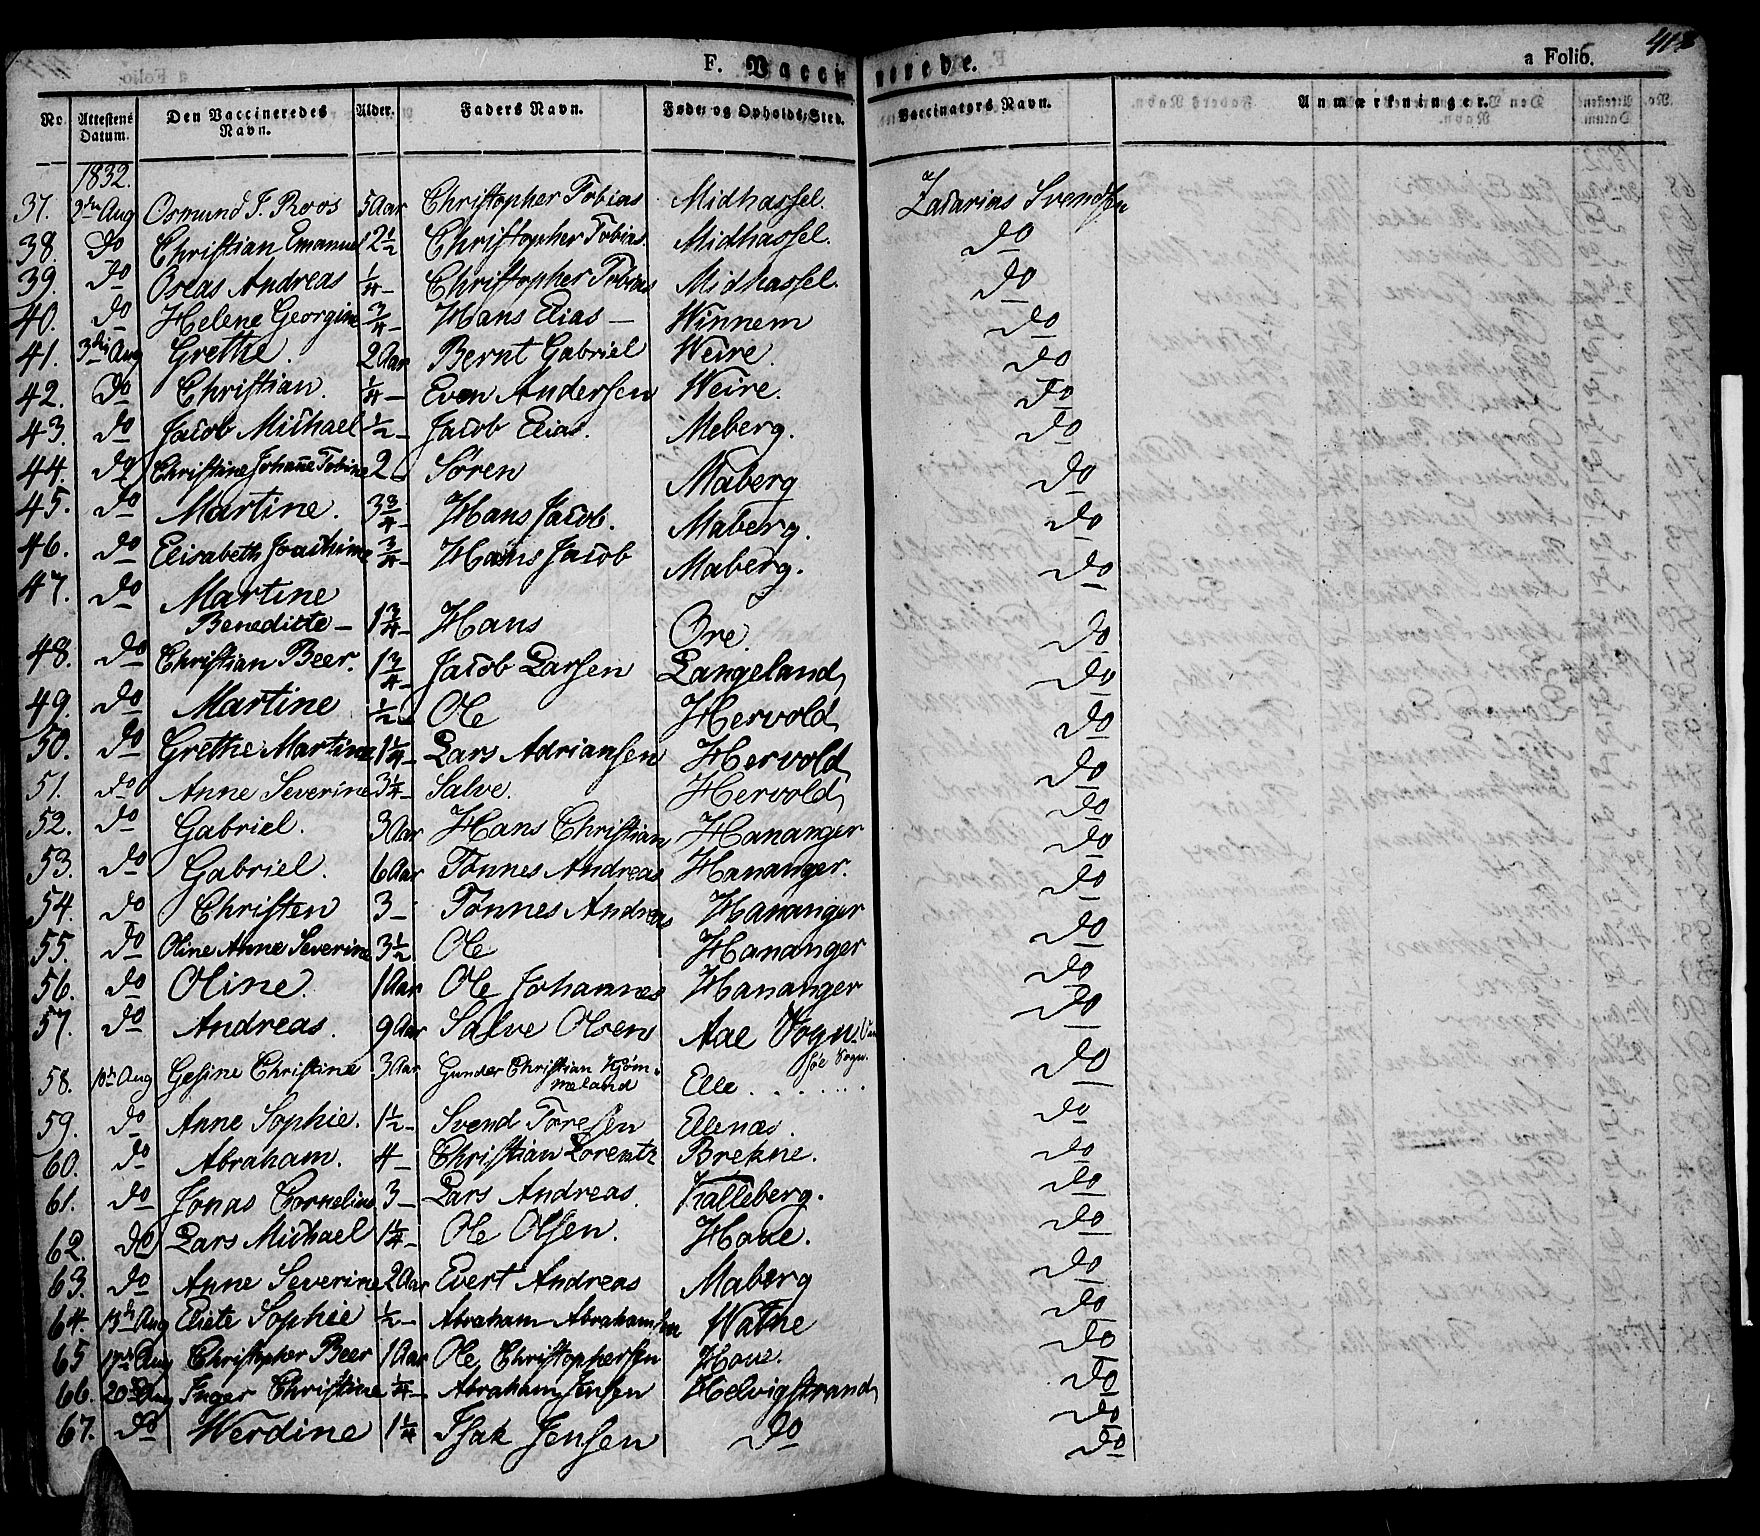 F. Vaccinerede.
a Folio. 418
No. | Attestens Datum. | Den Vaccineredes Navn. | Alder. | Faders Navn. | Føde- og Opholds-Sted. | Vaccinators Navn. | Anmærkninger.
1832.
37. 2den Aug Osmund T. Roos 5 Aar Christopher Tobias Midhassel. Zacarias Svendsen
38. do Christian Emanuel 2½ Christopher Tobias. Midhassel. do
39. do Oseas Andreas ¼ – Christopher Tobias Midhassel. do
40. do Helene Georgine ¾ – Hans Elias – Winnem do
41. 3di Aug Grethe. 2 Aar Bernt Gabriel Weire. do
42. do Christian. ¼ – Even Andersen Weire. do
43. do Jacob Michael ½ – Jacob Elias. Meberg. do
44. do Christine Johanne Tobine 2 – Sören Maberg do
45. do Martine. 3¾ – Hans Jacob. Maberg. do
46. do Elisabeth Joachime ¾ – Hans Jacob Maberg. do
47. do Martine
Benedicte – 1¾ – Hans Ore. do
48. do Christian Beer. 1¾ – Jacob Larsen Langeland do
49. do Martine ½ – Ole Hervold do
50. do Grethe Martine 1¼ – Lars Adriansen Hervold do
51. do Anne Severine 3¼ – Salve. Hervold do
52. do Gabriel. 3 Aar Hans Christian Hananger do
53. do Gabriel. 6 Aar Tönnes Andreas Hananger. do
54. do Christen 3 – Tönnes Andreas Hananger do
55. do Oline Anne Severine 3½ Ole Hananger do
56. do Oline. 1 Aar Ole Johannes Hananger do
57. do Andreas. 9 Aar Salve Olsen Aae Sogn. do
söe Sogn.
58. 10de Aug Gesine Christine 3 Aar Gunder Christian Kjöm-
meland Elle . . . . . do
59. do Anne Sophie. 1½ – Svend Toresen Ellenæs. do
60. do Abraham. 4 – Christian Lorentz Brekne. do
61. do Jonas Cornelius 3 – Lars Andreas. Kalleberg. do
62. do Lars Michael 1¼ – Ole Olsen. Houe. do
63. do Anne Severine 2 Aar Evert Andreas Maberg do
64. 13de Aug Eliete Sophie ½ – Abraham Abrahamsen Watne do
65 17de Aug Christopher Beer 1 Aar Ole Christophersen Houe. do
66. 20de Aug Inger Christine ¼ – Abraham Jensen Helvigstrand do
67. do Werdine 1¼ Isak Jensen do do